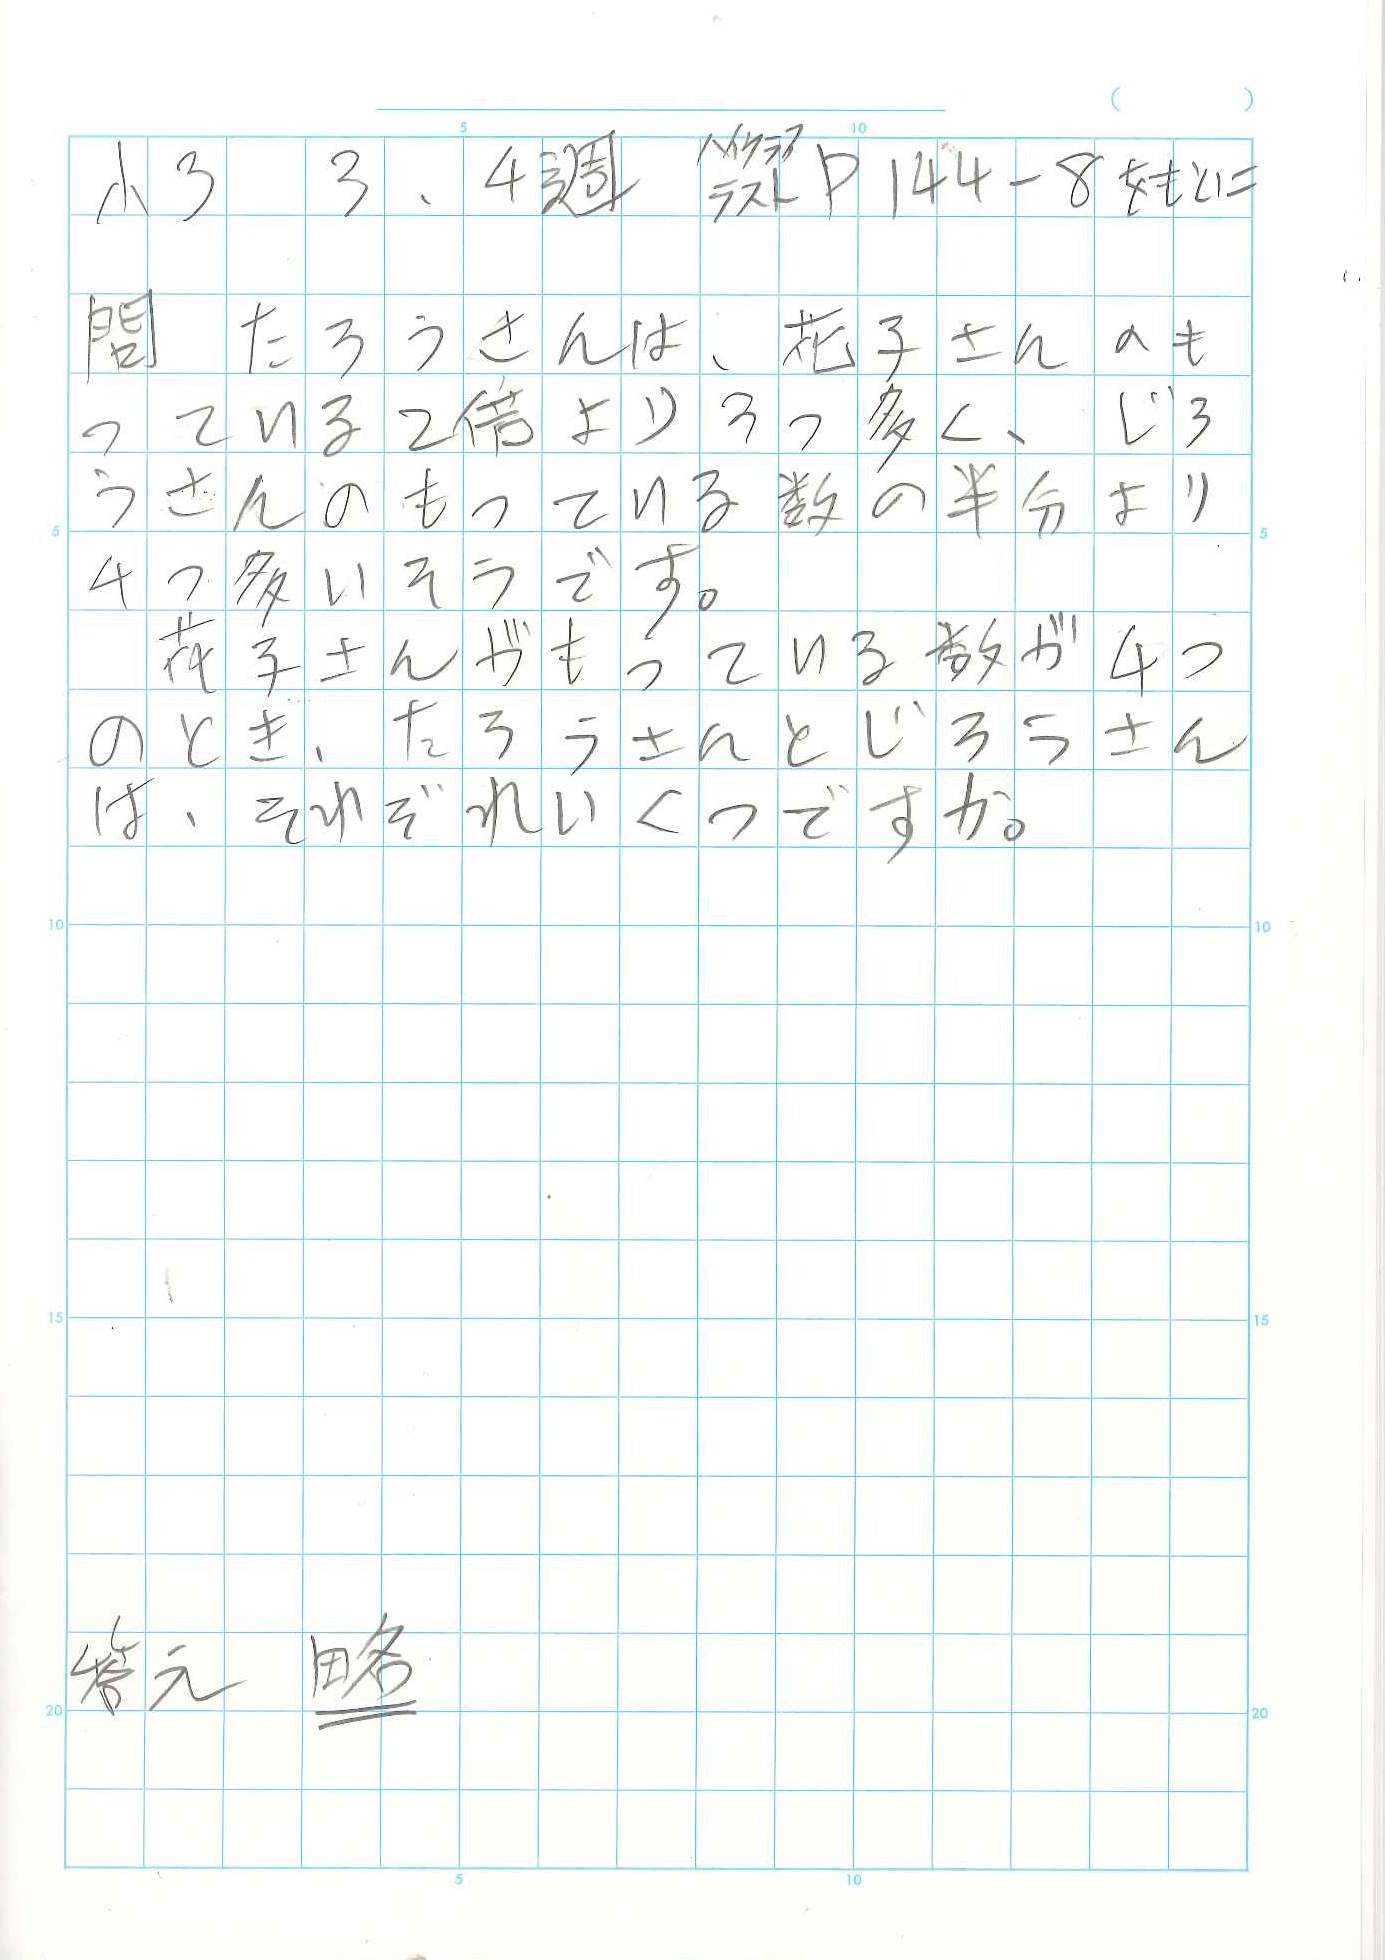 ( )
5 10
小3 3、4週 ハイクラステスト P144-8をもとに
問 たろうさんは、花子さんのも
っている2倍より3つ多く、じろ
うさんのもっている数の半分より
5 5
4つ多いそうです。
花子さんがもっている数が4つ
のとき、たろうさんとじろうさん
は、それぞれいくつですか。
10 10
15 15
答え 略
20 20
5 10